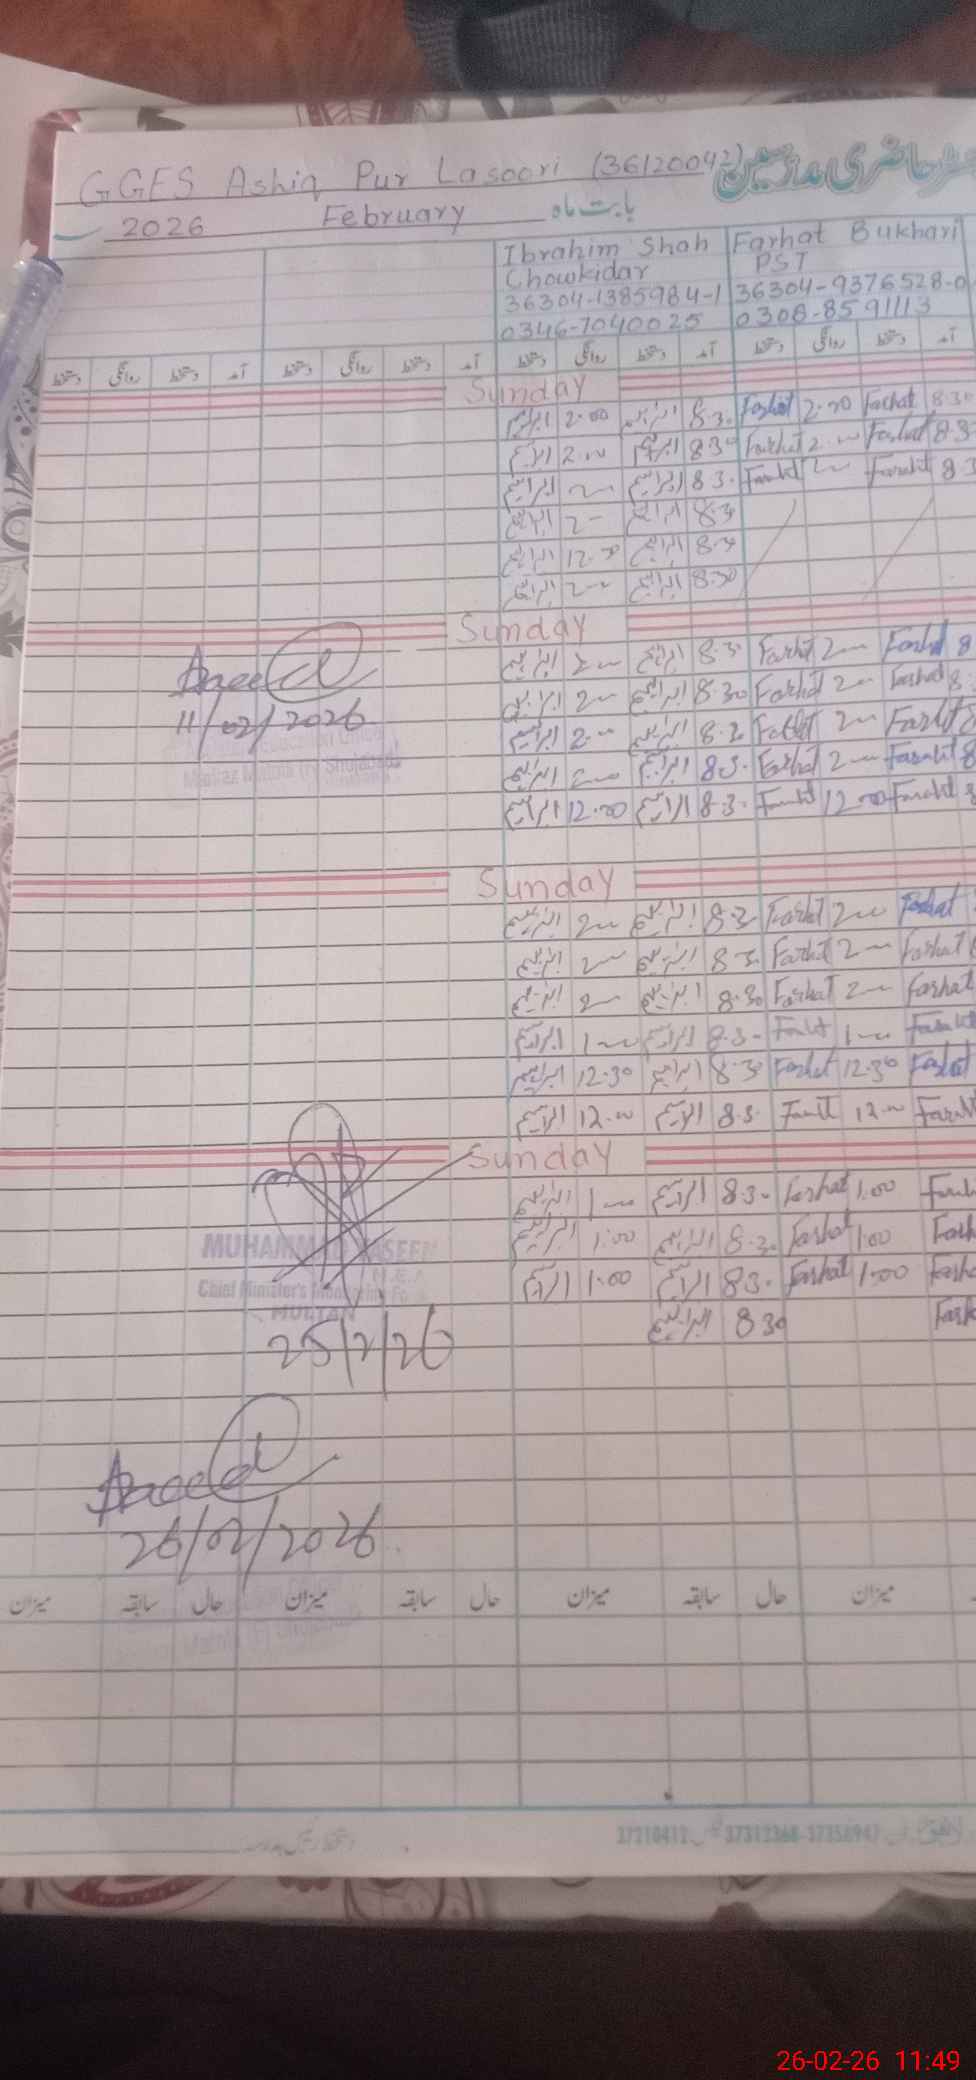 GGES Ashiq Pur Lasoori (36120042) حاضری مدرسین
2026 February بابت ماہ
Ibrahim Shah Farhat Bukhari
Chowkidar PST
36304-1385984-1 36304-9376528-0
0346-7040025 0308-8591113
دستخط روانگی دستخط آمد دستخط روانگی دستخط آمد دستخط روانگی دستخط آمد دستخط روانگی دستخط آمد
Sunday
ابراہیم 2.00 ابراہیم 8.30 Farhat 2.00 Farhat 8.30
ابراہیم 2.00 ابراہیم 8.30 Farhat 2.00 Farhat 8.3
ابراہیم 2 ابراہیم 8.30 Farhat 2 Farhat 8.3
ابراہیم 2 ابراہیم 8.30
ابراہیم 12.30 ابراہیم 8.30
ابراہیم 2 ابراہیم 8.30
Sunday
ابراہیم 2 ابراہیم 8.30 Farhat 2 Farhat 8
ابراہیم 2 ابراہیم 8.30 Farhat 2 Farhat 8.
ابراہیم 2 ابراہیم 8.30 Farhat 2 Farhat 8
ابراہیم 2 ابراہیم 8.30 Farhat 2 Farhat 8
ابراہیم 12.00 ابراہیم 8.30 Farhat 12.00 Farhat 8
11/02/2026
Markaz Matotli (F) Shujabad
Sunday
ابراہیم 2 ابراہیم 8.30 Farhat 2 Farhat
ابراہیم 2 ابراہیم 8.30 Farhat 2 Farhat
ابراہیم 2 ابراہیم 8.30 Farhat 2 Farhat
ابراہیم 1 ابراہیم 8.30 Farhat 1 Farhat
ابراہیم 12.30 ابراہیم 8.30 Farhat 12.30 Farhat
ابراہیم 12.00 ابراہیم 8.30 Farhat 12.00 Farhat
Sunday
ابراہیم 1 ابراہیم 8.30 Farhat 1.00 Farh
ابراہیم 1:00 ابراہیم 8.30 Farhat 1.00 Farh
ابراہیم 1:00 ابراہیم 8.30 Farhat 1:00 Farha
ابراہیم 8 30 Farh
MUHAMMAD YASEEN
Chief Minister's Monitoring Force
MULTAN
25/2/26
26/02/2026
میزان سابقہ حال میزان سابقہ حال میزان سابقہ حال میزان
26-02-26 11:49